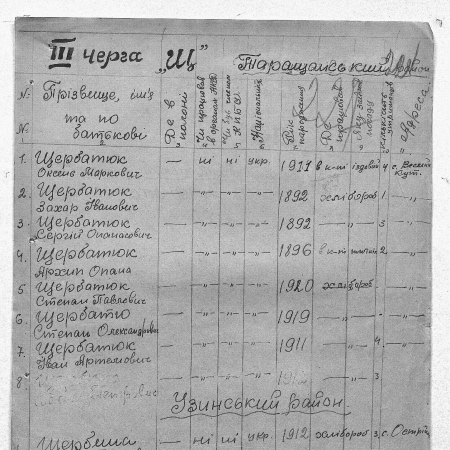 III черга „Щ"
Таращанський район
№ № Прізвище, ім'я та по батькові Де в полоні Чи працював в органах НКВД Чи був членом НКВД Національність Рік народження Де працював Яку займав посаду Адреса
1. Щербатюк Оксена Маркович — ні ні укр. 1911 в к-пі їздовий 4 с. Веселий Кут.
2. Щербатюк Захар Іванович — „ „ „ 1892 хлібороб 1 „
3. Щербатюк Сергій Опанасович — „ „ „ 1892 „ 3 „
4. Щербатюк Архип Опана — „ „ „ 1896 в к-пі 2 „
5. Щербатюк Степан Павлович — „ „ „ 1920 хлібороб - „
6. Щербатю Степан Олександрович — „ „ „ 1919 „ - „
7. Щербатюк Іван Артемович — „ „ „ 1911 „ 4 „
8 — „ „ „ „ 3 „
Узинський район
1 — ні ні укр. 1912 хлібороб 3 с.